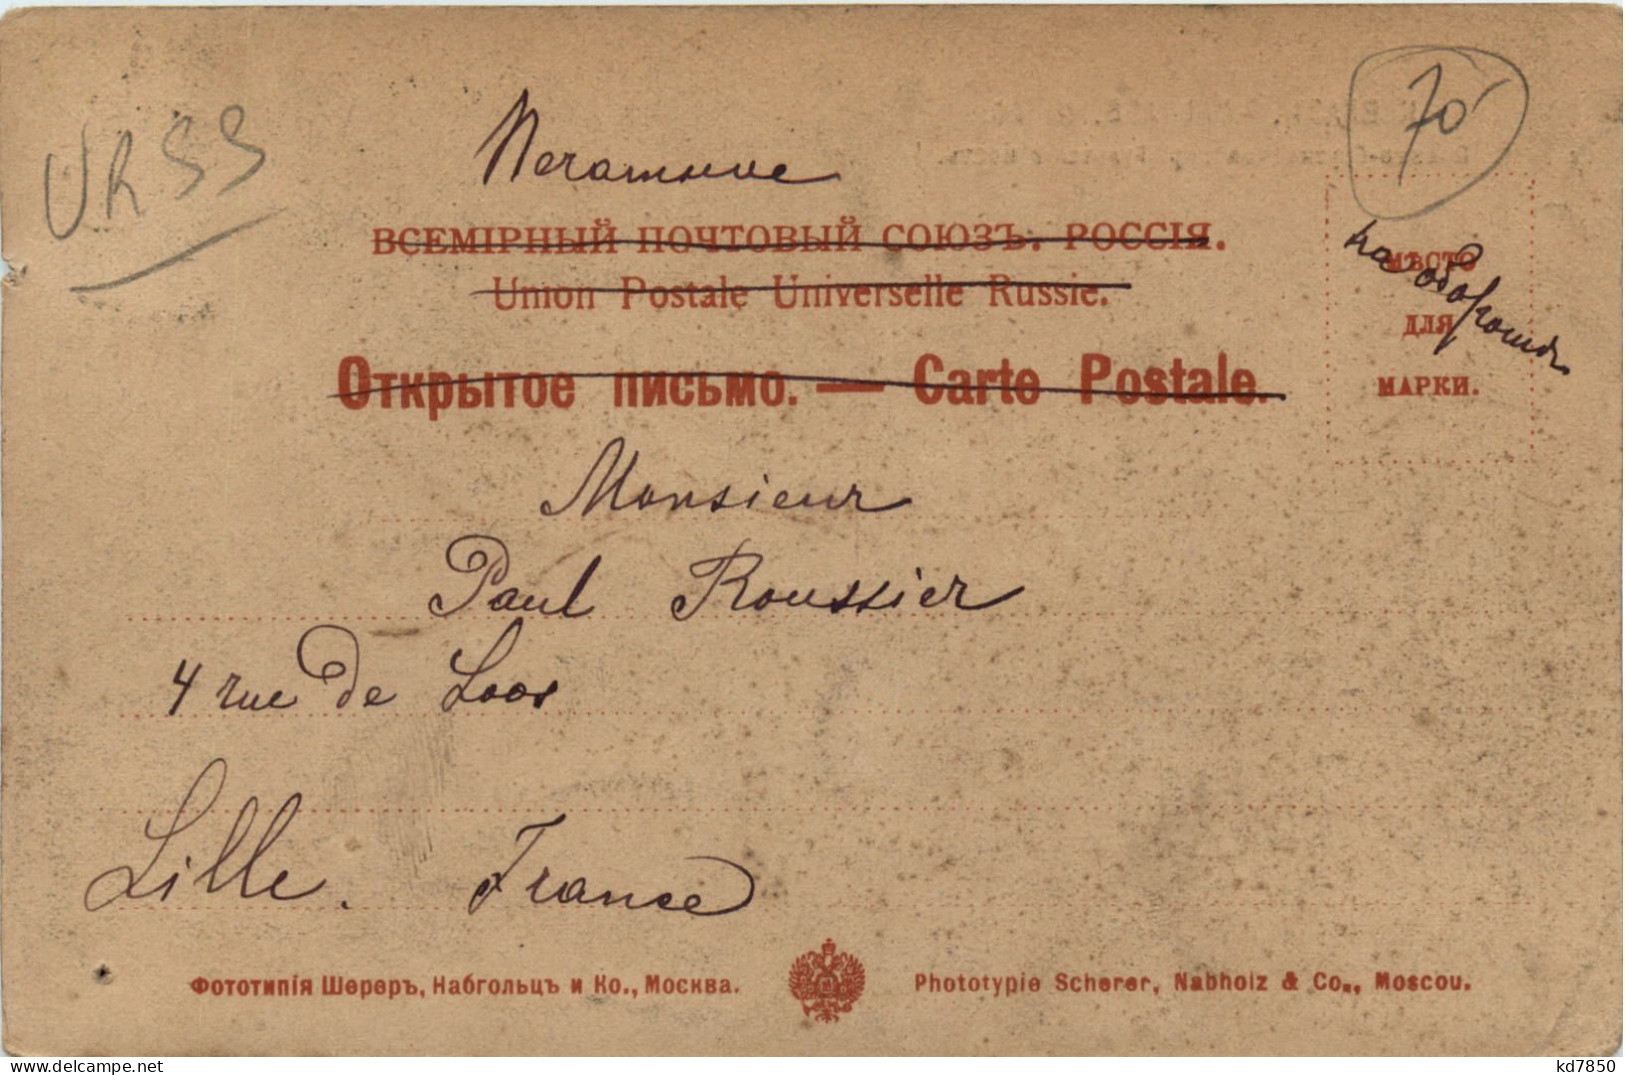 URSS
70
Печатное
ВСЕМІРНЫЙ ПОЧТОВЫЙ СОЮЗЪ. РОССІЯ.
Union Postale Universelle Russie.
Открытое письмо. — Carte Postale.
МѢСТО
ДЛЯ
МАРКИ.
на оборотѣ
Monsieur
Paul Roussier
4 rue de Loos
Lille. France
Фототипія Шереръ, Набгольцъ и Ко., Москва.
Phototypie Scherer, Nabholz & Co., Moscou.
kd7850